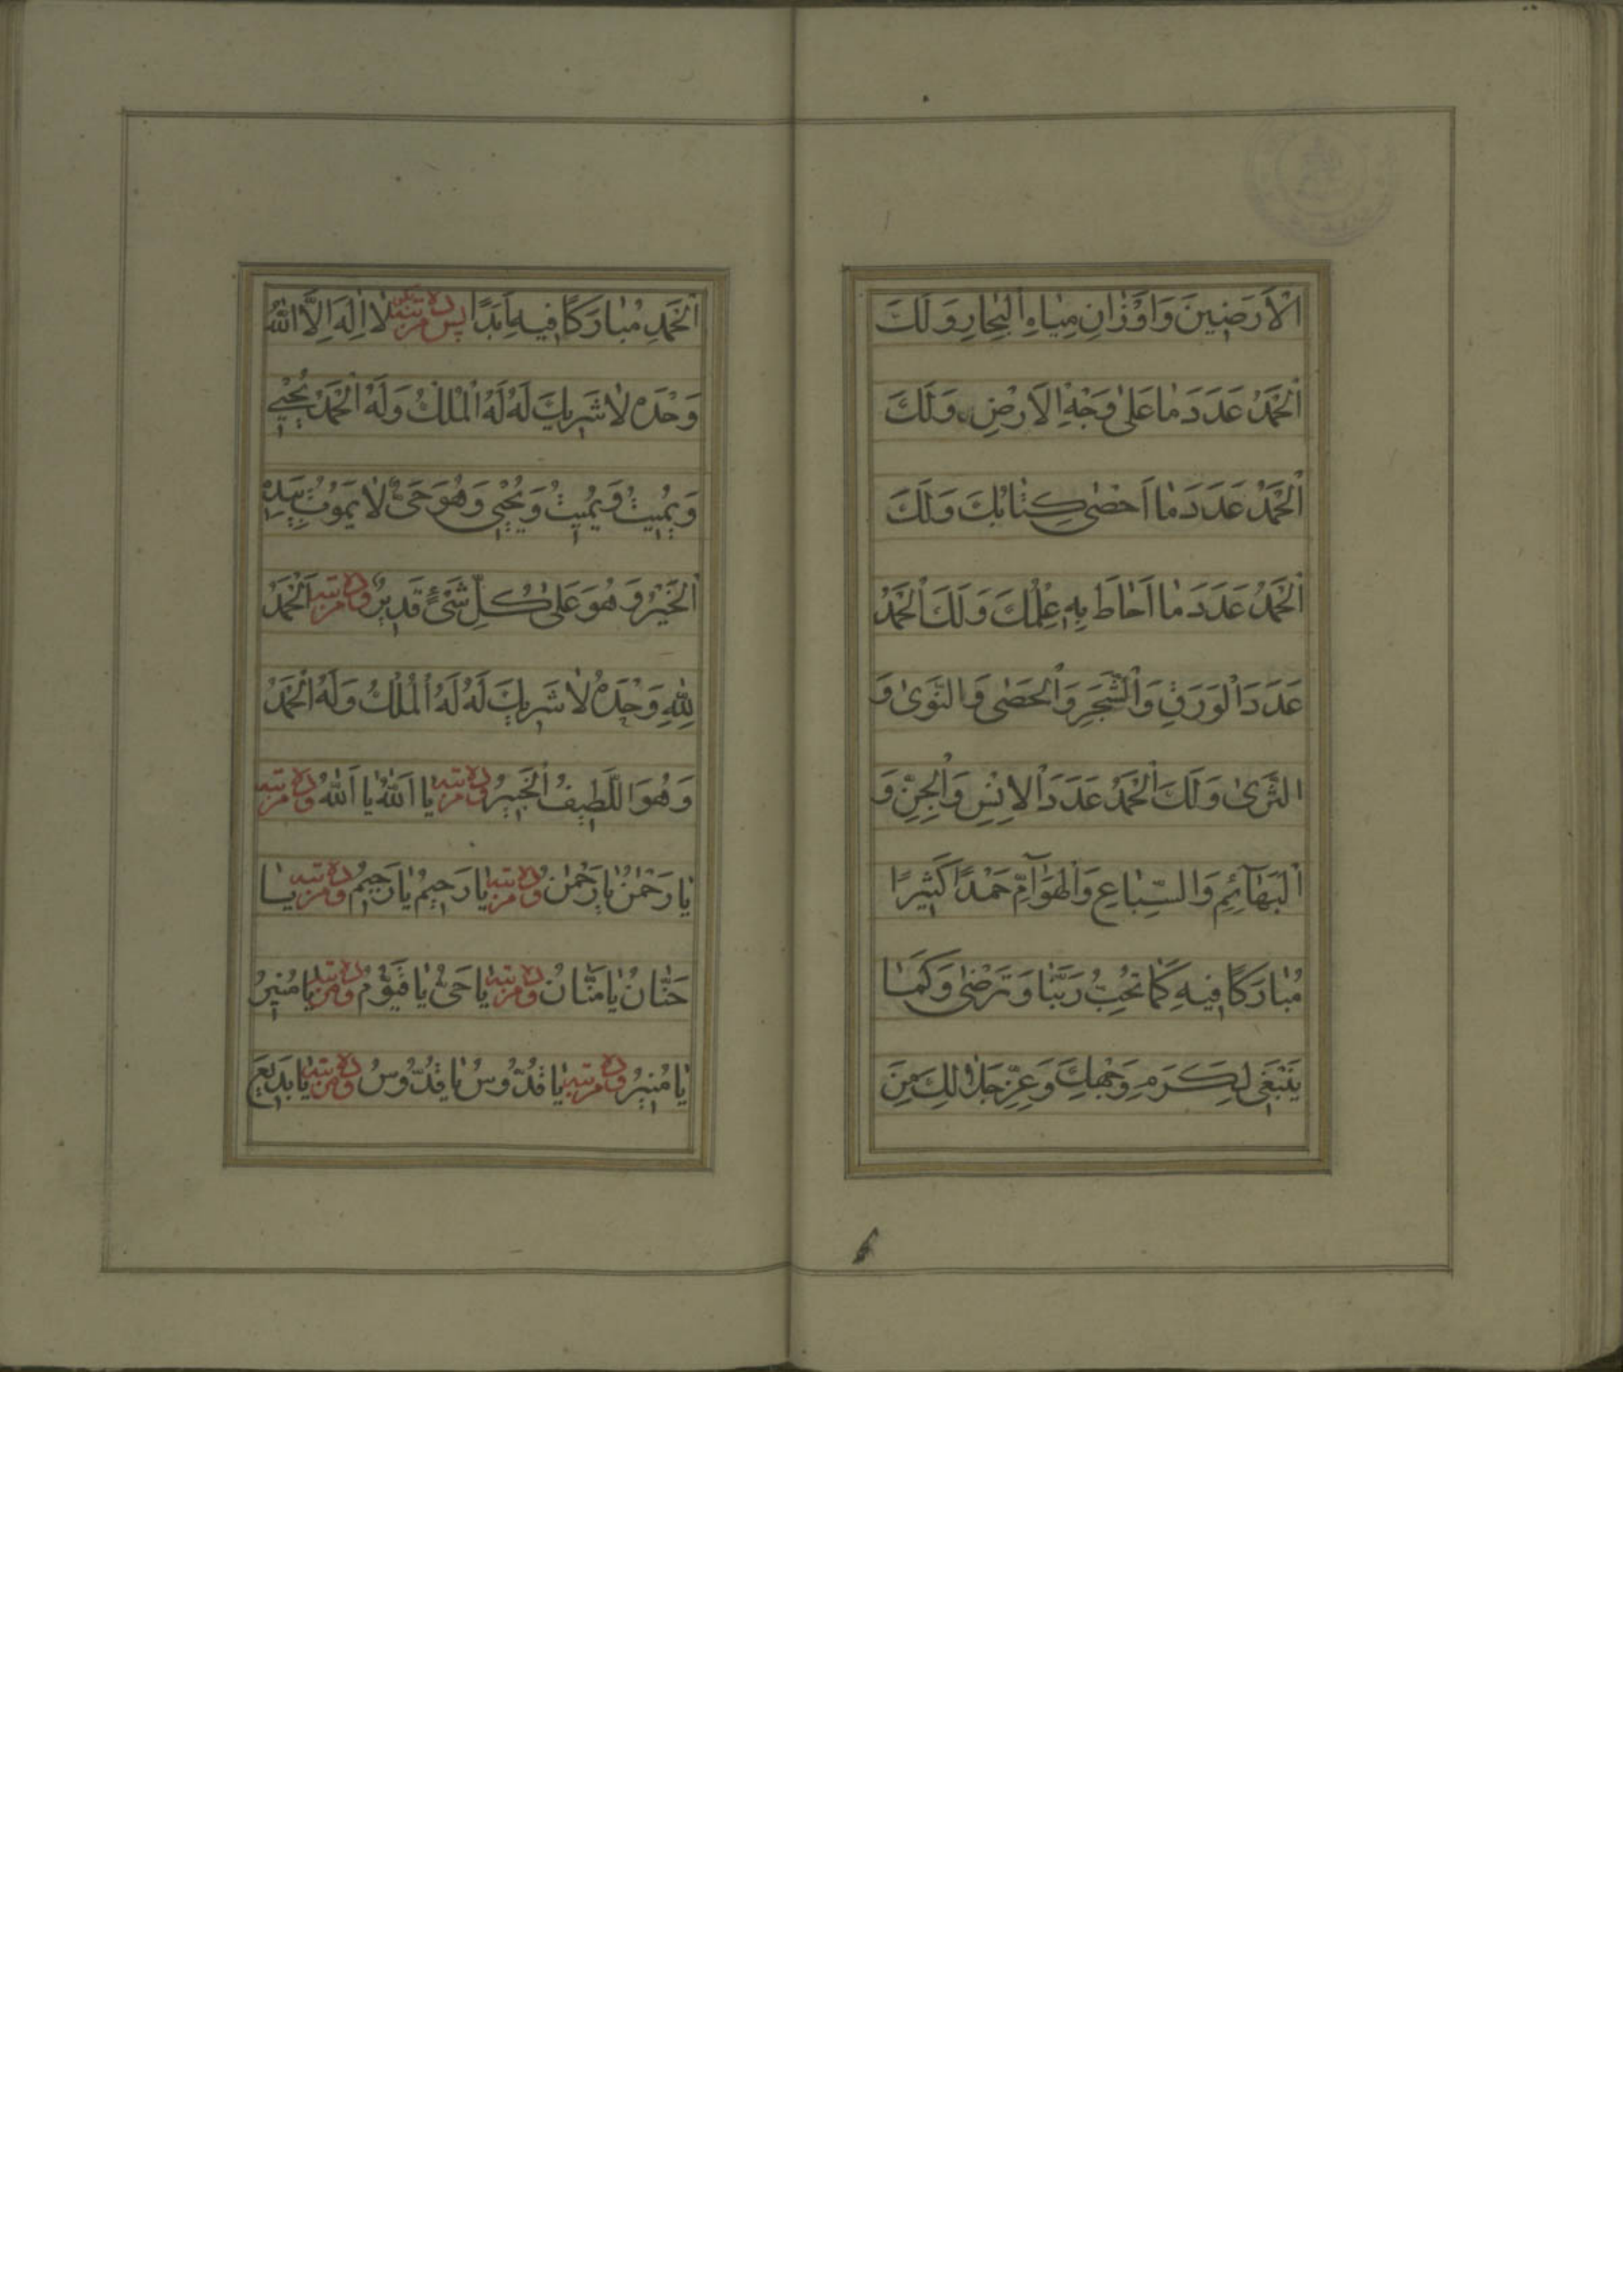 اْلاَرَضٖينَ وَاَوْزٰانِ مِيٰاهِ الْبِحٰارِ وَلَكَ
الْحَمْدُ عَدَدَ مٰا عَلىٰ وَجْهِ الْاَرْضِ وَلَكَ
الْحَمْدُ عَدَدَ مٰا اَحْصٰى كِتٰابُكَ وَلَكَ
الْحَمْدُ عَدَدَ مٰا اَحٰاطَ بِهِ عِلْمُكَ وَلَكَ الْحَمْدُ
عَدَدَ الْوَرَقِ وَالشَّجَرِ وَالْحَصٰى وَالنَّوىٰ وَ
الثَّرىٰ وَلَكَ الْحَمْدُ عَدَدَ الْاِنْسِ وَالْجِنِّ وَ
الْبَهٰآئِمِ وَالسِّبٰاعِ وَالْهَوٰآمِّ حَمْدًا كَثٖيرًا
مُبٰارَكًا فٖيهِ كَمٰا تُحِبُّ رَبَّنٰا وَتَرْضٰى وَكَمٰا
يَنْبَغٖى لِكَرَمِ وَجْهِكَ وَعِزِّ جَلٰالِكَ مِنَ
الْحَمْدِ مُبٰارَكًا فٖيهِ اَبَدًا پس ده مرتبه بگو لٰا اِلٰهَ اِلَّا اللّٰهُ
وَحْدَهُ لٰا شَرٖيكَ لَهُ لَهُ الْمُلْكُ وَلَهُ الْحَمْدُ يُحْيٖي
وَيُمٖيتُ وَيُمٖيتُ وَيُحْيٖى وَهُوَ حَىٌّ لٰا يَمُوتُ بِيَدِهِ
الْخَيْرُ وَهُوَ عَلىٰ كُلِّ شَىْءٍ قَدٖيرٌ و ده مرتبه اَلْحَمْدُ
لِلّٰهِ وَحْدَهُ لٰا شَرٖيكَ لَهُ لَهُ الْمُلْكُ وَلَهُ الْحَمْدُ
وَهُوَ اللَّطٖيفُ الْخَبٖيرُ و ده مرتبه يٰا اَللّٰهُ يٰا اَللّٰهُ و ده مرتبه
يٰا رَحْمٰنُ يٰا رَحْمٰنُ و ده مرتبه يٰا رَحٖيمُ يٰا رَحٖيمُ و ده مرتبه يٰا
حَنّٰانُ يٰا مَنّٰانُ و ده مرتبه يٰا حَىُّ يٰا قَيُّومُ و ده مرتبه يٰا مُنٖيرُ
يٰا مُنٖيرُ و ده مرتبه يٰا قُدُّوسُ يٰا قُدُّوسُ و ده مرتبه يٰا بَدٖيعَ